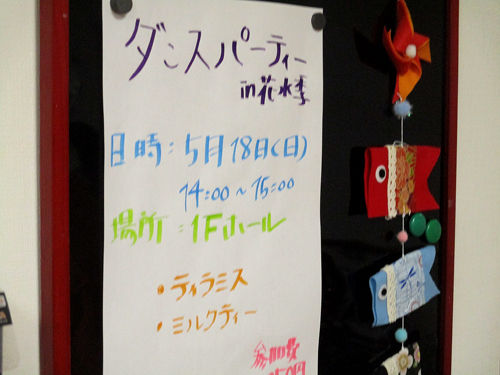 ダンスパーティー
in 花水季
日時:5月18日(日)
14:00~15:00
場所:1Fホール
・ティラミス
・ミルクティー
参加費
50円